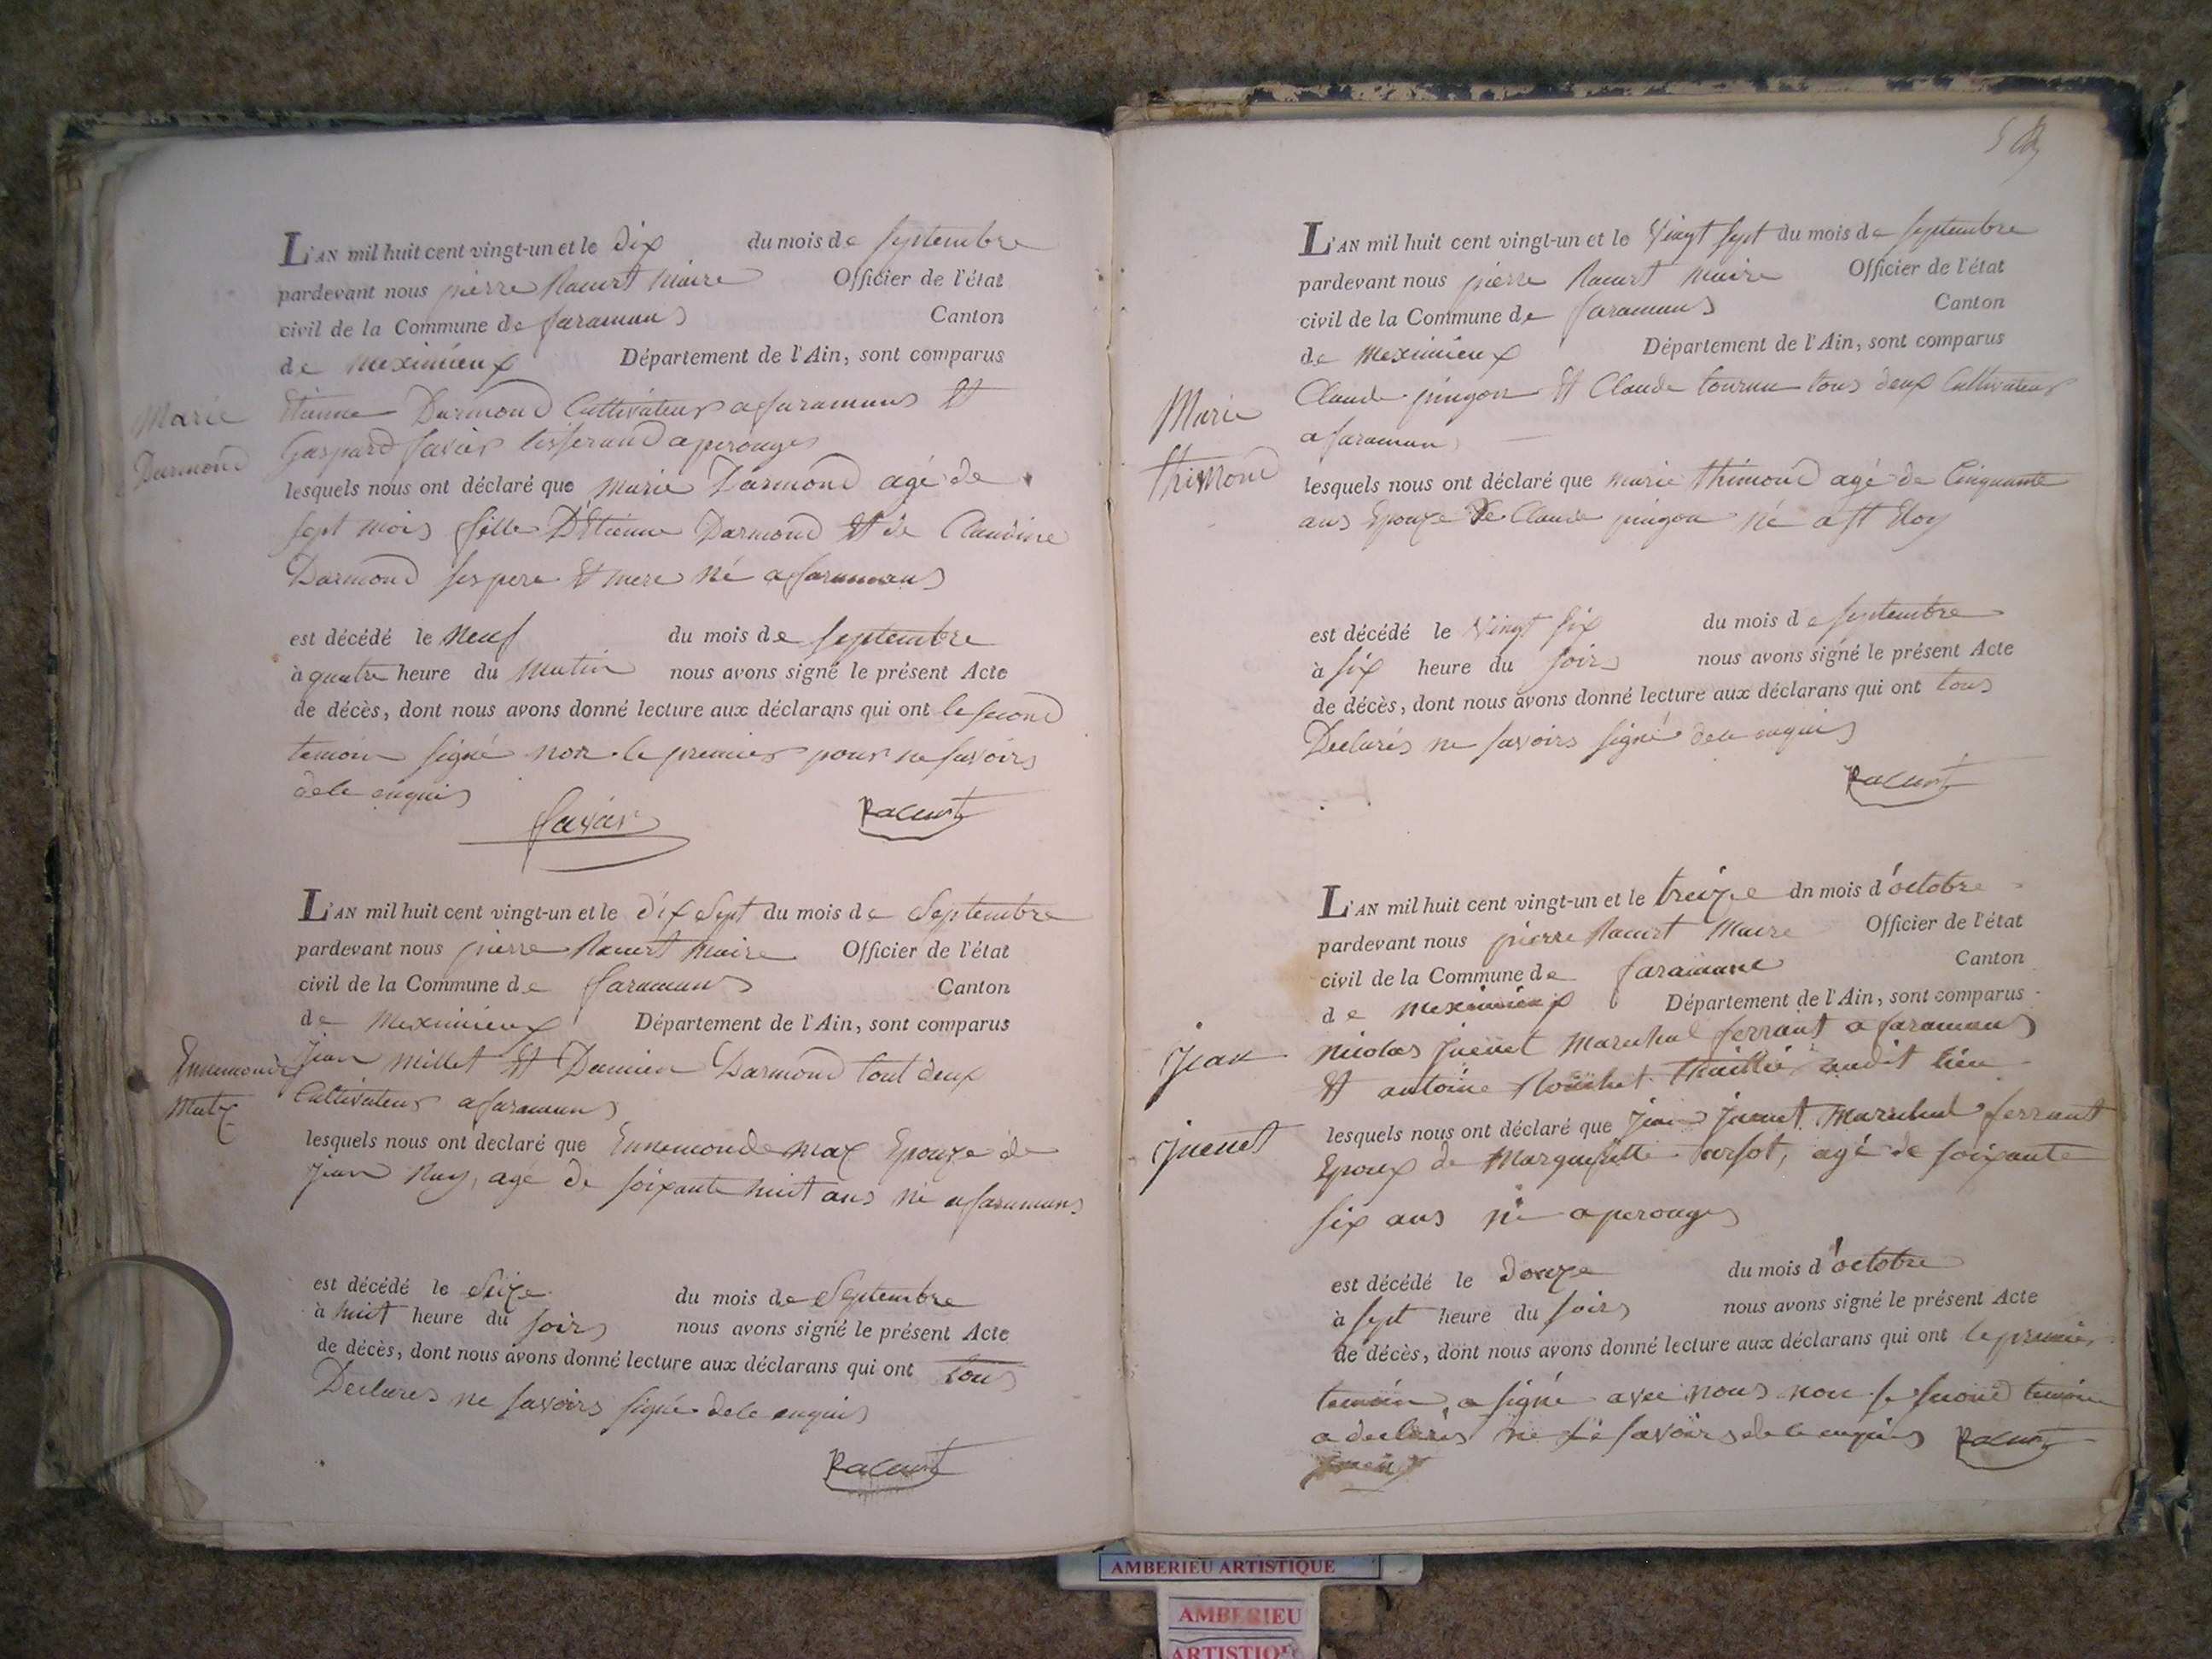 L'AN mil huit cent vingt-un et le dix du mois de septembre
pardevant nous pierre Racurt maire Officier de l'état
civil de la Commune de faramans Canton
de meximieux Département de l'Ain, sont comparus
Marie
Darmond
Etienne Darmond Cultivateur a faramans Et
Gaspard favier tisserand a perouges
lesquels nous ont déclaré que marie Darmond agé de
sept mois fille D'Etienne Darmond Et de Claudine
Darmond ses pere Et mere né a faramans
est décédé le neuf du mois de septembre
à quatre heure du matin nous avons signé le présent Acte
de décès, dont nous avons donné lecture aux déclarans qui ont le second
temoin signé non le premier pour ne savoirs
de ce enquis
favier Racurt
L'AN mil huit cent vingt-un et le dix Sept du mois de Septembre
pardevant nous pierre Racurt maire Officier de l'état
civil de la Commune de faramans Canton
de meximieux Département de l'Ain, sont comparus
Ennemonde
jean millet Et Damien Darmond tout deux
Cultivateur a faramans
lesquels nous ont declaré que Ennemonde max Epouze de
jean Ruy, agé de soixante huit ans né a faramans
est décédé le Seize du mois de Septembre
à huit heure du soirs nous avons signé le présent Acte
de décès, dont nous avons donné lecture aux déclarans qui ont tous
Declares ne savoirs signé de ce enquis
Racurt
L'AN mil huit cent vingt-un et le Vingt sept du mois de septembre
pardevant nous pierre Racurt maire Officier de l'état
civil de la Commune de faramans Canton
de meximieux Département de l'Ain, sont comparus
Marie
thimond
Claude pingon Et Claude tournu tous deux Cultivateur
a faramans
lesquels nous ont déclaré que marie thimond agé de Cinquante
ans Epouze de Claude pingon né a st Eloy
est décédé le Vingt six du mois de septembre
à six heure du soirs nous avons signé le présent Acte
de décès, dont nous avons donné lecture aux déclarans qui ont tous
Declarés ne savoirs signé de ce enquis
Racurt
L'AN mil huit cent vingt-un et le treize dn mois d'octobre
pardevant nous pierre Racurt Maire Officier de l'état
civil de la Commune de faramans Canton
de meximieux Département de l'Ain, sont comparus
jean
juenet
nicolas juenet marechal ferrant a faramans
Et antoine Rouchet audit lieu
lesquels nous ont déclaré que jean juenet marechal ferrant
Epoux de Margueritte agé de soixante
six ans né a perouges
est décédé le Douze du mois d'octobre
à sept heure du soirs nous avons signé le présent Acte
de décès, dont nous avons donné lecture aux déclarans qui ont le premier
temoin a signé avec nous non le second temoin
a declarés ne le savoirs de ce enquis Racurt
AMBERIEU ARTISTIQUE
AMBERIEU